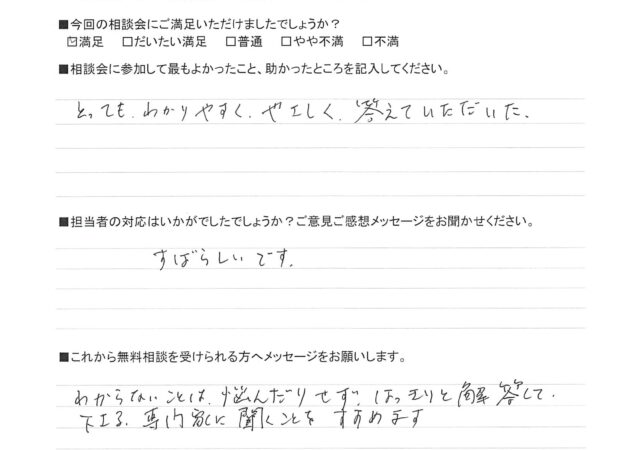 ■今回の相談会にご満足いただけましたでしょうか?
☑満足 □だいたい満足 □普通 □やや不満 □不満
■相談会に参加して最もよかったこと、助かったところを記入してください。
とっても、わかりやすく、やさしく、答えていただいた。
■担当者の対応はいかがでしたでしょうか?ご意見ご感想メッセージをお聞かせください。
すばらしいです。
■これから無料相談を受けられる方へメッセージをお願いします。
わからないことは、悩んだりせず、はっきりと解答して、
下さる、専門家に聞くことをすすめます